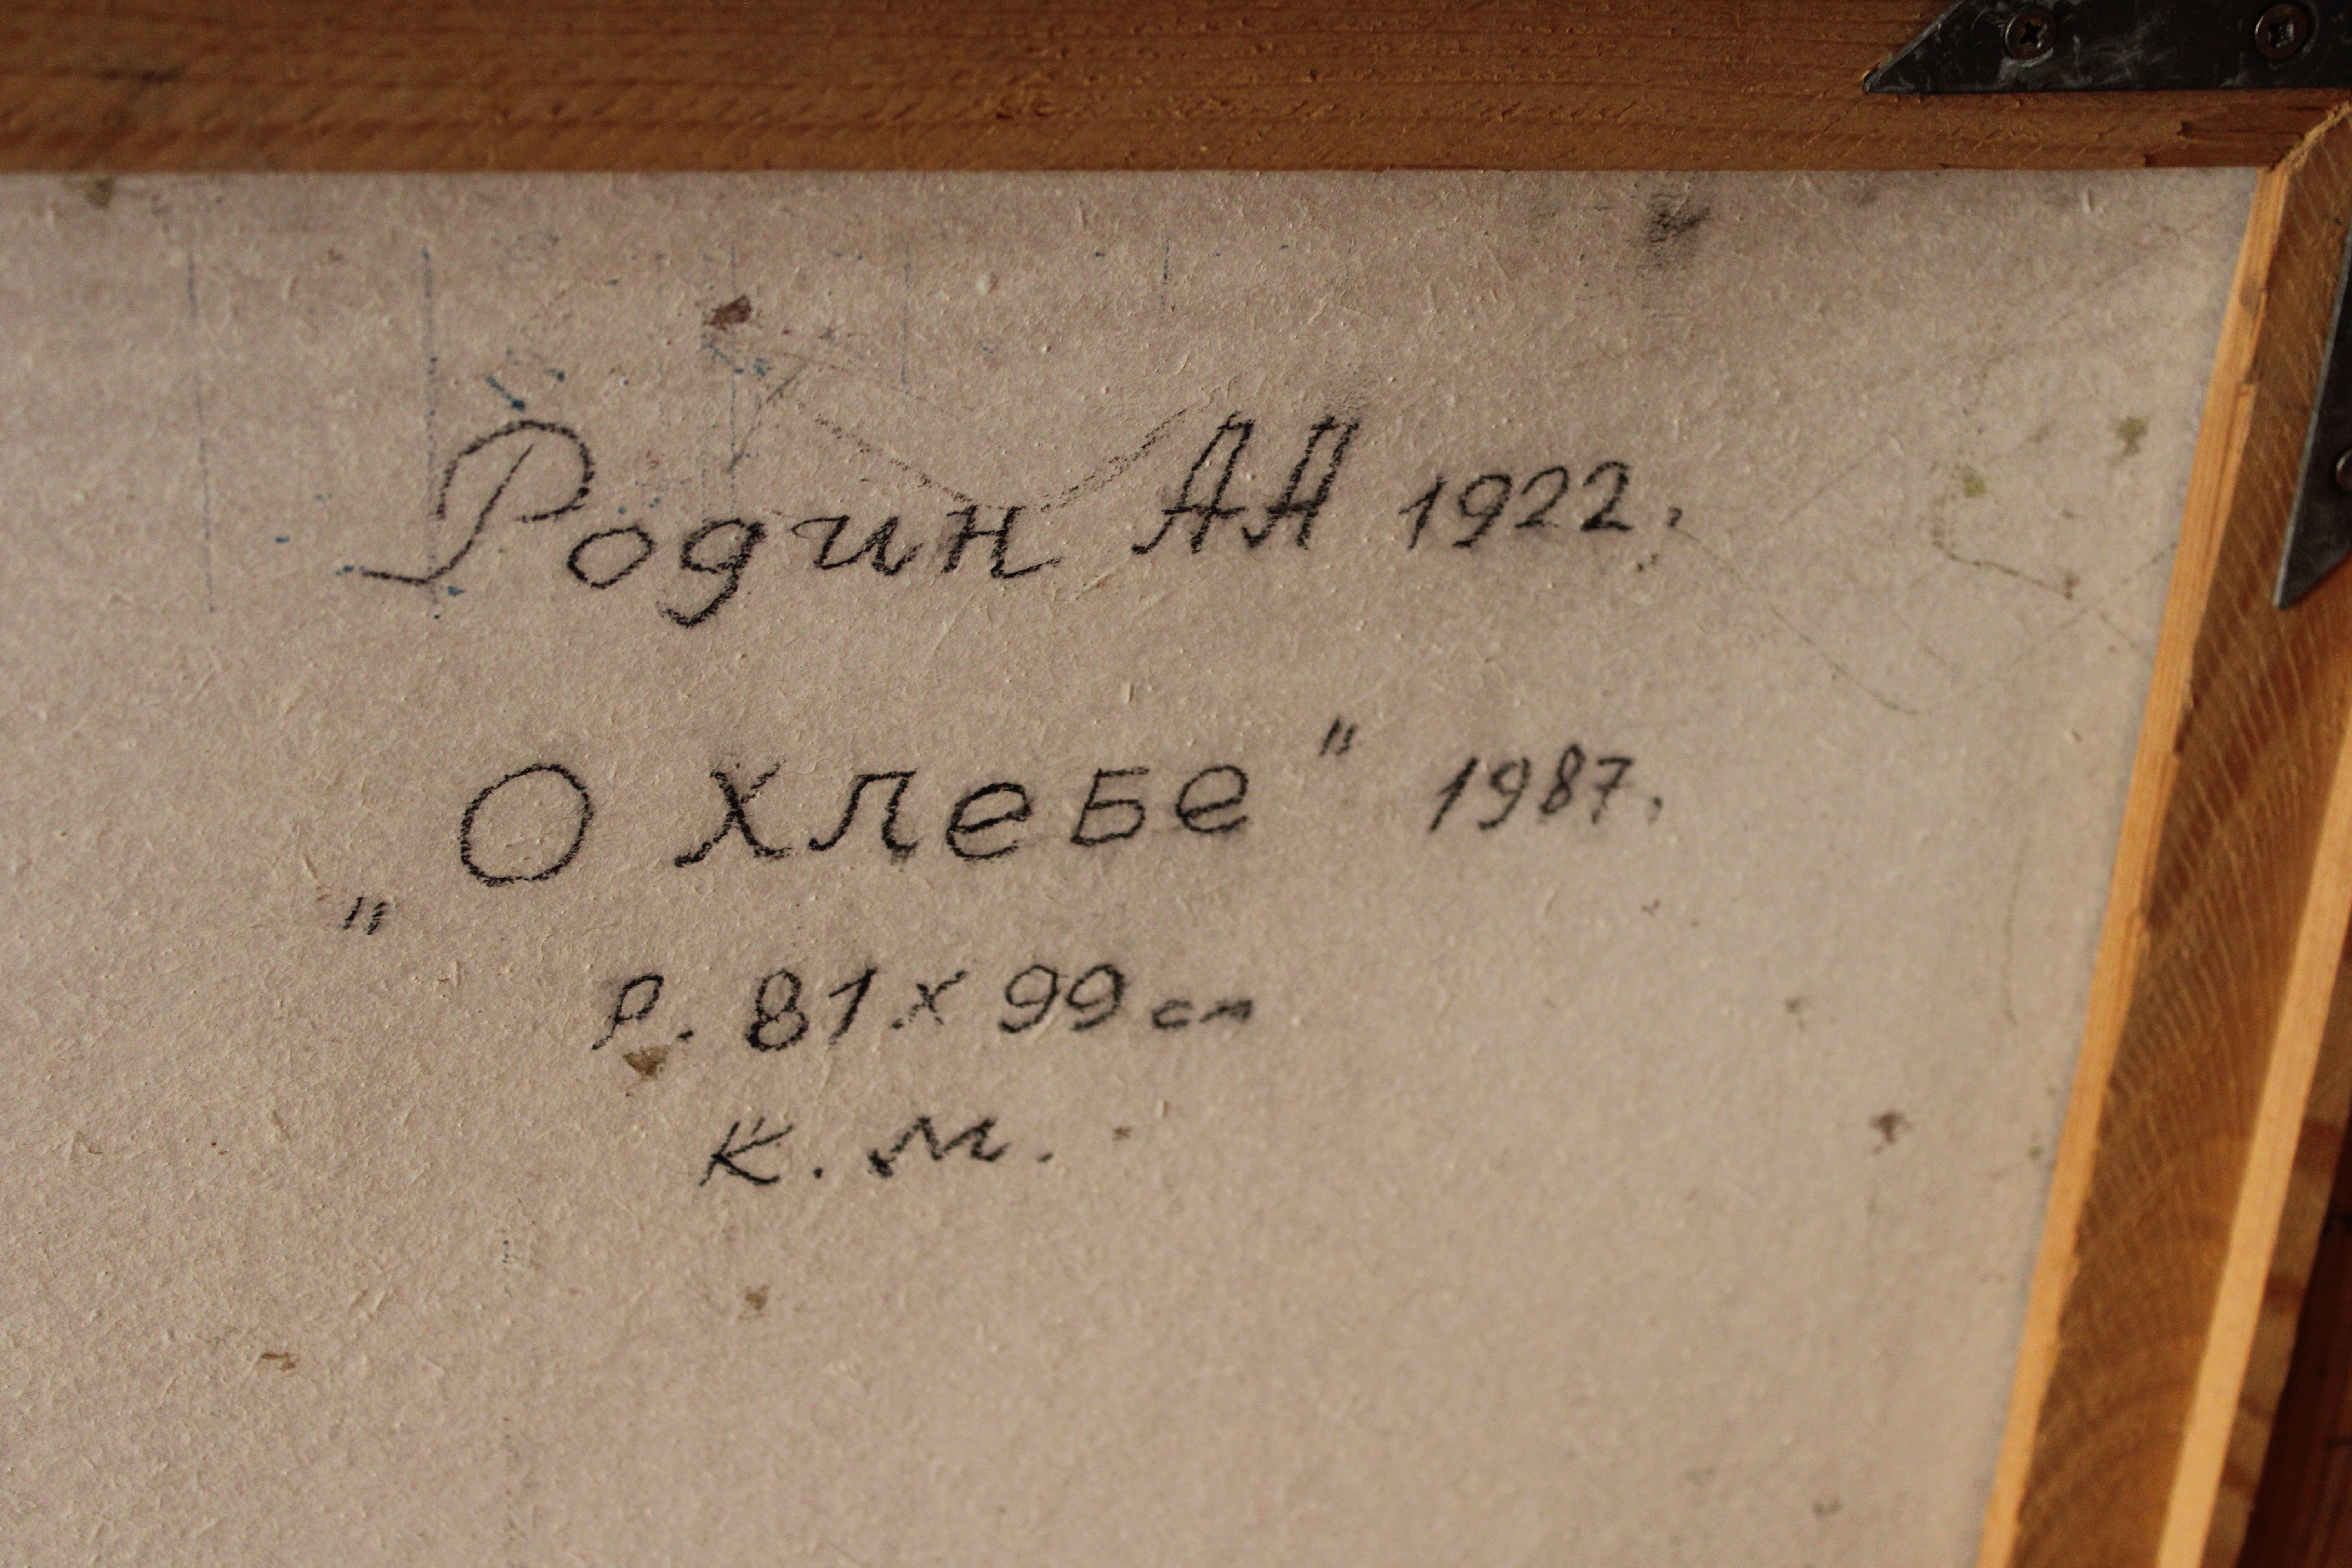 Родин АА 1922.
„О хлебе" 1987.
р. 81 х 99 см
К. м.